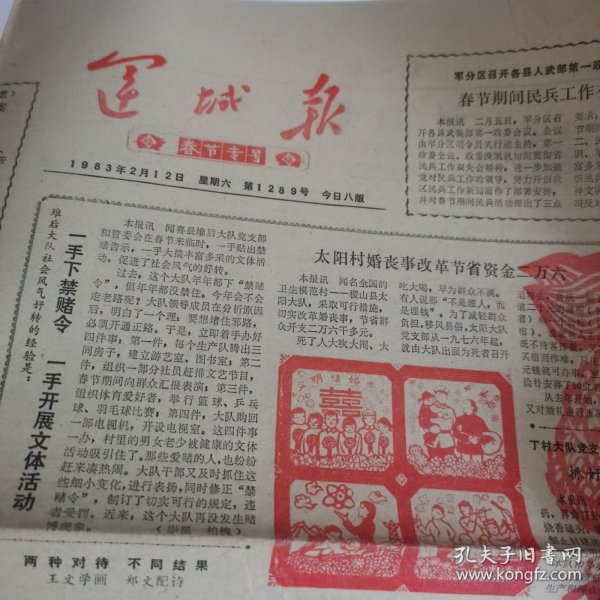 运城报
春节专号
1983年2月12日 星期六 第1289号 今日八版
军分区召开各县人武部第一政
春节期间民兵工作
本报讯 二月五日，军分区召
开各县武装部第一政委会议。会议
由军分区司令员关行道主持，
党对民兵工作的领导，努力开创我
区民兵工作新局面作了部署安排，
并对春节期间民兵活动提出了三点
堆后大队社会风气好转的经验是：
一手下禁赌令 一手开展文体活动
本报讯 闻喜县堆后大队党支部
和管委会在春节来临时，一手贴出禁
赌告示，一手大搞丰富多采的文体活
动，促进了社会风气的好转。
过去，这个大队年年都下“禁赌
令”，但年年都没禁住。今年会不会
走老路呢？大队领导成员在分析原因
后，明白了一个理，要想堵住邪路，
必须开通正路。于是，立即着手办好
四件事：第一件，每个生产队腾出三
间房子，建立游艺室、图书室；第二
件，组织一部分社员赶排文艺节目，
春节期间向群众汇报表演；第三件，
组织体育爱好者，举行篮球、乒乓
球、羽毛球比赛；第四件，大队购回
一部电视机，开设电视室。这四件事
一办，村里的男女老少被健康的文体
活动吸引住了，那些爱赌的人，也纷纷
赶来凑热闹。大队干部又及时抓住这
些细小变化，进行表扬，同时修正“禁
赌令”，制订了切实可行的规定，违
者受罚。近来，这个大队再没发生赌
博现象。
两种对待 不同结果
王文学画 郑文配诗
太阳村婚丧事改革节省资金二万六
本报讯 闻名全国的
卫生模范村——稷山县太
阳大队，采取可行措施，
切实改革婚丧事，节省群
众开支二万六千多元。
死了人大吹大闹、大
吃大喝，早为群众不满。
有人说那“不是埋人，而
是埋钱”。为了减轻群众
负担，移风易俗，太阳大队
党支部从一九七六年起，
就由大队出面为死者召开
文明结婚
囍
丁村大队党支
孔夫子旧书网
www.kongfz.com